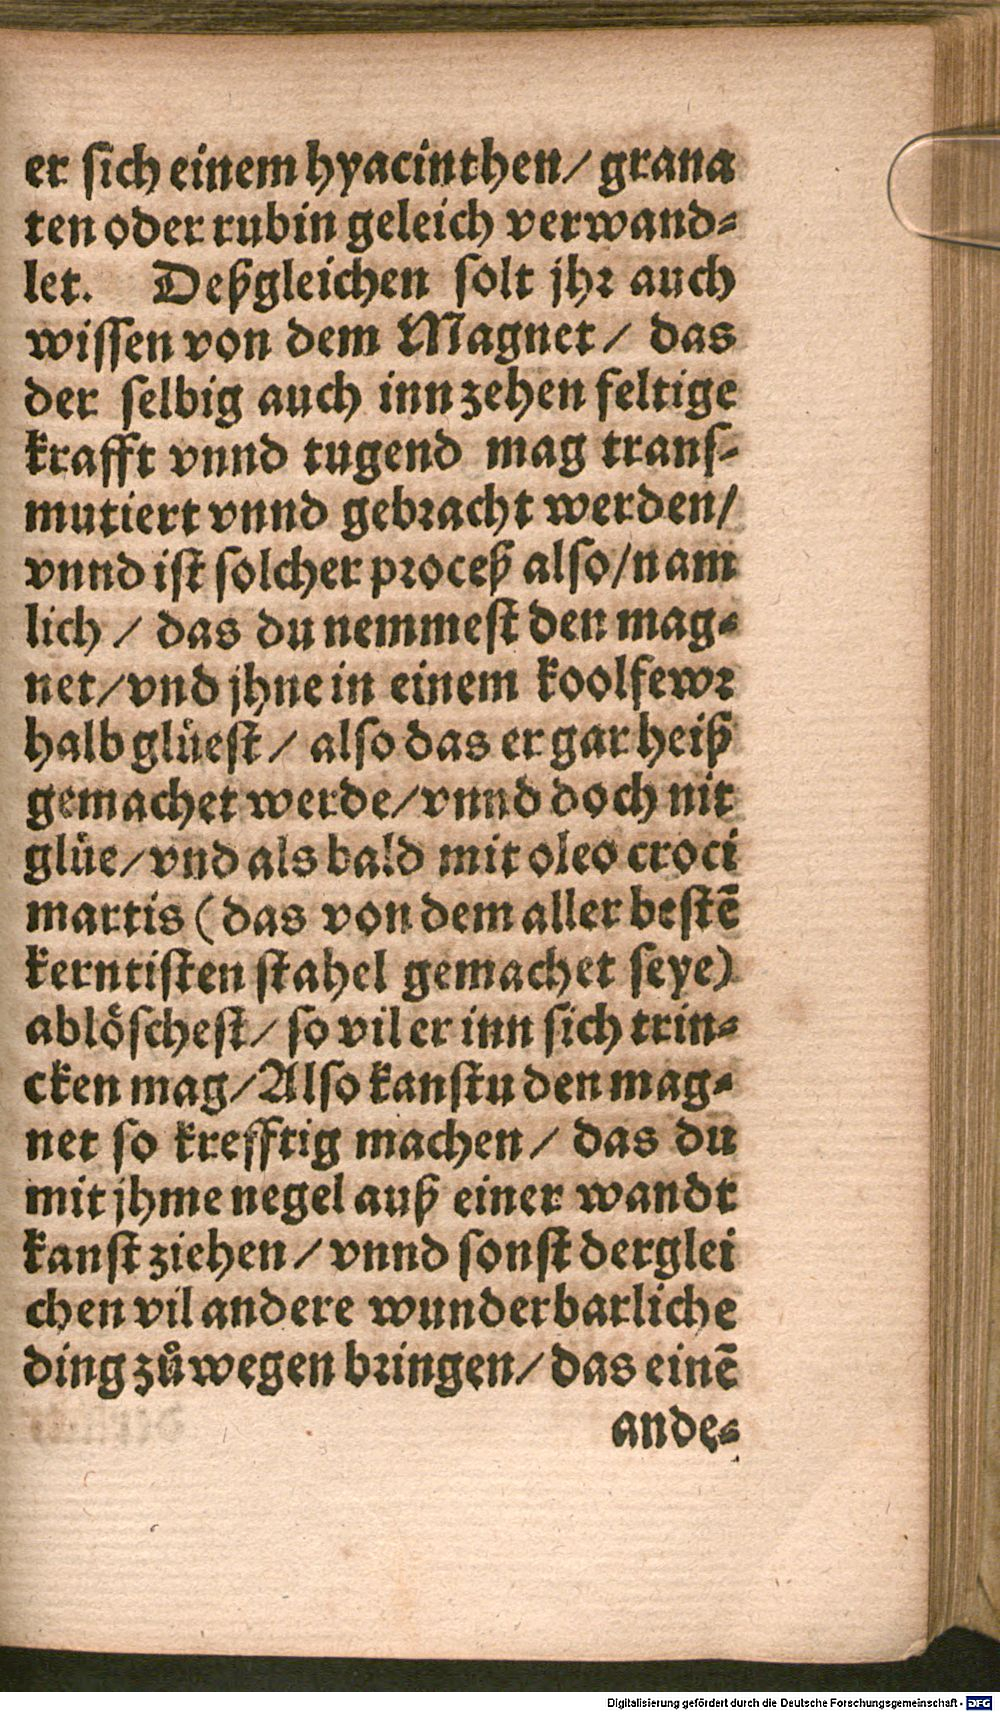 er sich einem hyacinthen/ grana
ten oder rubin geleich verwand-
let. Deßgleichen solt jhr auch
wissen von dem Magnet/ das
der selbig auch inn zehen feltige
krafft vnnd tugend mag trans-
mutiert vnnd gebracht werden/
vnnd ist solcher proceß also/ nam
lich/ das du nemmest den mag-
net/ vnd jhne in einem koolfewr
halb glüest/ also das er gar heiß
gemachet werde/ vnnd doch nit
glüe/ vnd als bald mit oleo croci
martis (das von dem aller bestē
kerntisten stahel gemachet seye)
ablöschest/ so vil er inn sich trin-
cken mag/ Also kanstu den mag-
net so krefftig machen/ das du
mit jhme negel auß einer wandt
kanst ziehen/ vnnd sonst derglei
chen vil andere wunderbarliche
ding zů wegen bringen/ das einē
ande-
Digitalisierung gefördert durch die Deutsche Forschungsgemeinschaft - DFG